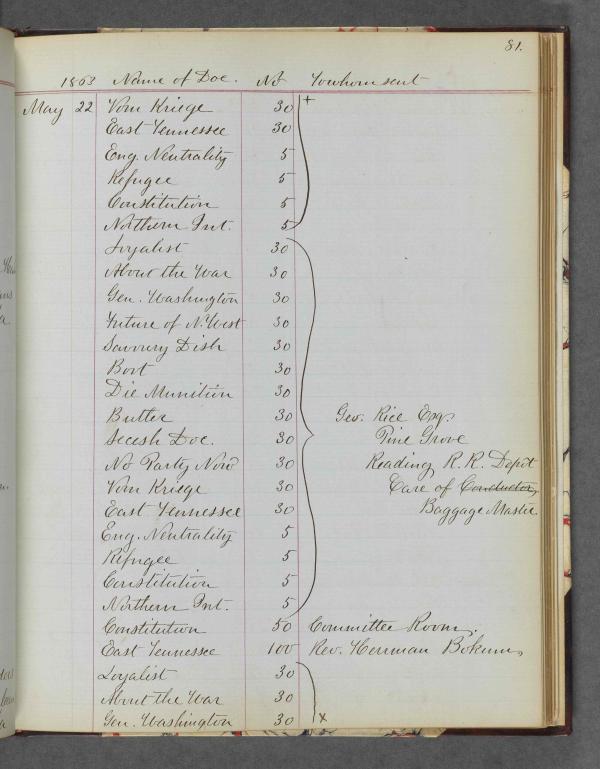 81.
1863 Name of Doc. No To whom sent
May 22 Vom Kriege 30 +
East Tennessee 30
Eng. Neutrality 5
Refugee 5
Constitution 5
Northern Int. 5
Loyalist 30
About the War 30
Gen. Washington 30
Future of N. West 30
Savoury Dish 30
Boot 30
Die Munition 30
Butler 30 Geo. Rice Esq.
Secesh Doc. 30 Pine Grove
No Party Now 30 Reading R. R. Depot
Vom Kriege 30 Care of Conductor,
East Tennessee 30 Baggage Master
Eng. Neutrality 5
Refugee 5
Constitution 5
Northern Int. 5
Constitution 50 Committee Room.
East Tennessee 100 Rev. Herrman Bokum,
Loyalist 30
About the War 30
Gen. Washington 30 x